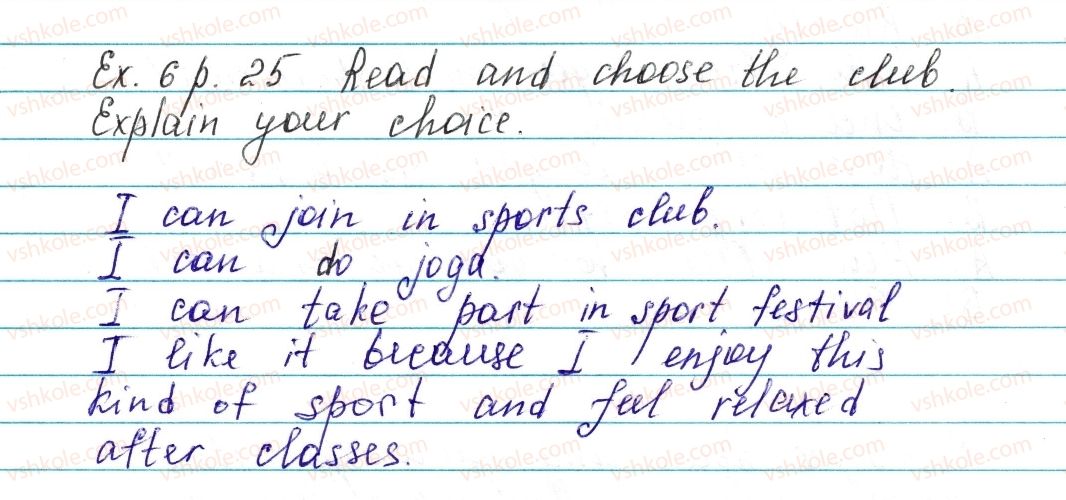 Ex. 6 p. 25 Read and choose the club.
Explain your choice.
I can join in sports club.
I can do joga.
I can take part in sport festival
I like it because I enjoy this
kind of sport and feel relaxed
after classes.